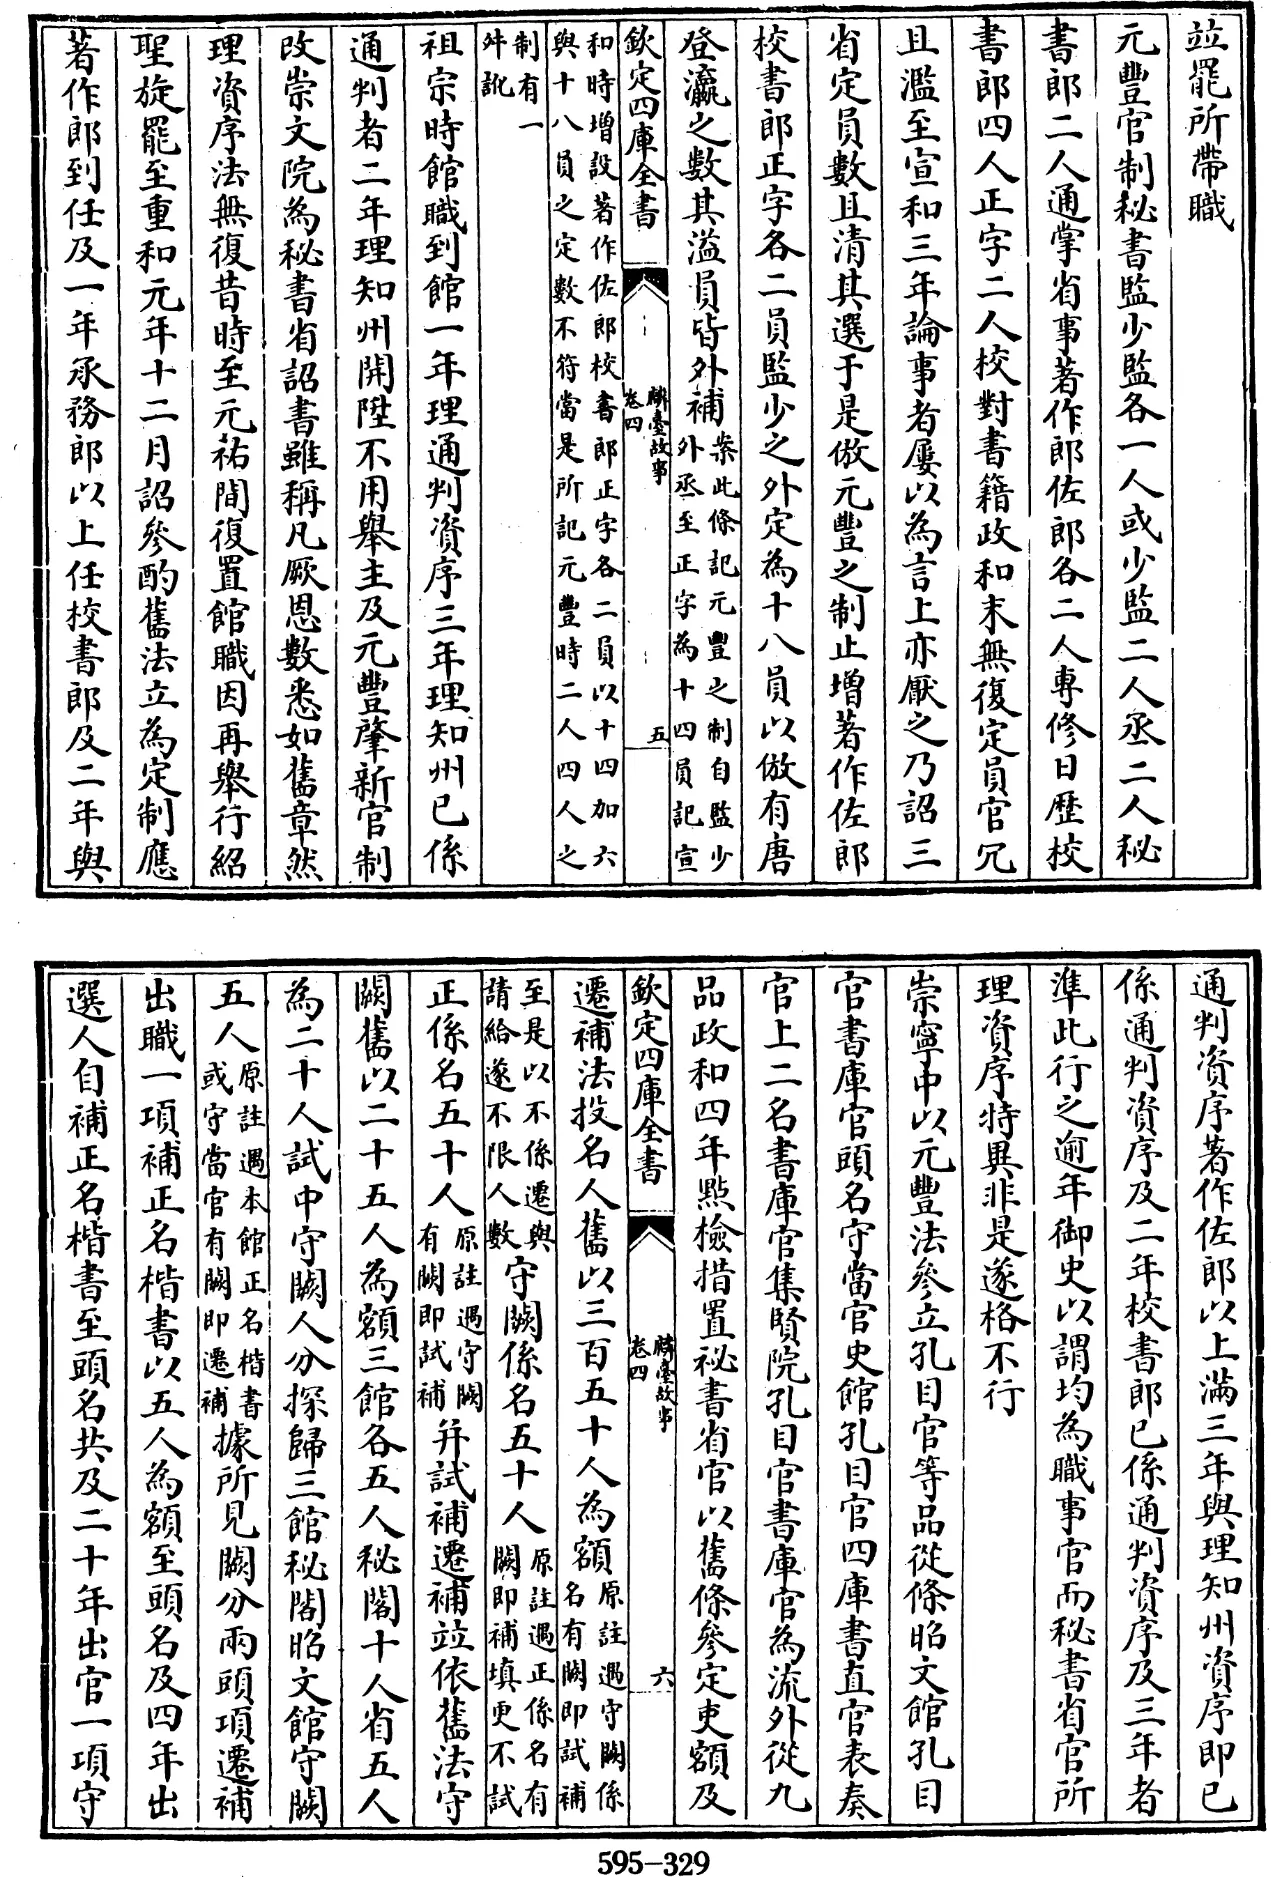 並罷所帶職
元豐官制秘書監少監各一人或少監二人丞二人秘
書郎二人通掌省事著作郎佐郎各二人專修日歷校
書郎四人正字二人校對書籍政和末無復定員官冗
且濫至宣和三年論事者屢以為言上亦厭之乃詔三
省定員數且清其選于是倣元豐之制止增著作佐郎
校書郎正字各二員監少之外定為十八員以倣有唐
登瀛之數其溢員皆外補案此條記元豐之制自監少
外丞至正字為十四員記宣
欽定四庫全書
麟臺故事
卷四
五
和時增設著作佐郎校書郎正字各二員以十四加六
與十八員之定數不符當是所記元豐時二人四人之
制有一
舛訛
祖宗時館職到館一年理通判資序三年理知州已係
通判者二年理知州開陞不用舉主及元豐肇新官制
改崇文院為秘書省詔書雖稱凡厥恩數悉如舊章然
理資序法無復昔時至元祐間復置館職因再舉行紹
聖旋罷至重和元年十二月詔參酌舊法立為定制應
著作郎到任及一年承務郎以上任校書郎及二年與
通判資序著作佐郎以上滿三年與理知州資序即已
係通判資序及二年校書郎已係通判資序及三年者
準此行之逾年御史以謂均為職事官而秘書省官所
理資序特異非是遂格不行
崇寧中以元豐法參立孔目官等品從條昭文館孔目
官書庫官頭名守當官史館孔目官四庫書直官表奏
官上二名書庫官集賢院孔目官書庫官為流外從九
品政和四年點檢措置祕書省官以舊條參定吏額及
欽定四庫全書
麟臺故事
卷四
六
遷補法投名人舊以三百五十人為額原註遇守闕係
名有闕即試補
至是以不係遷與
請給遂不限人數守闕係名五十人原註遇正係名有
闕即補填更不試
正係名五十人原註遇守闕
有闕即試補并試補遷補並依舊法守
闕舊以二十五人為額三館各五人秘閣十人省五人
為二十人試中守闕人分探歸三館秘閣昭文館守闕
五人原註遇本館正名楷書
或守當官有闕即遷補據所見闕分兩頭項遷補
出職一項補正名楷書以五人為額至頭名及四年出
選人自補正名楷書至頭名共及二十年出官一項守
595-329